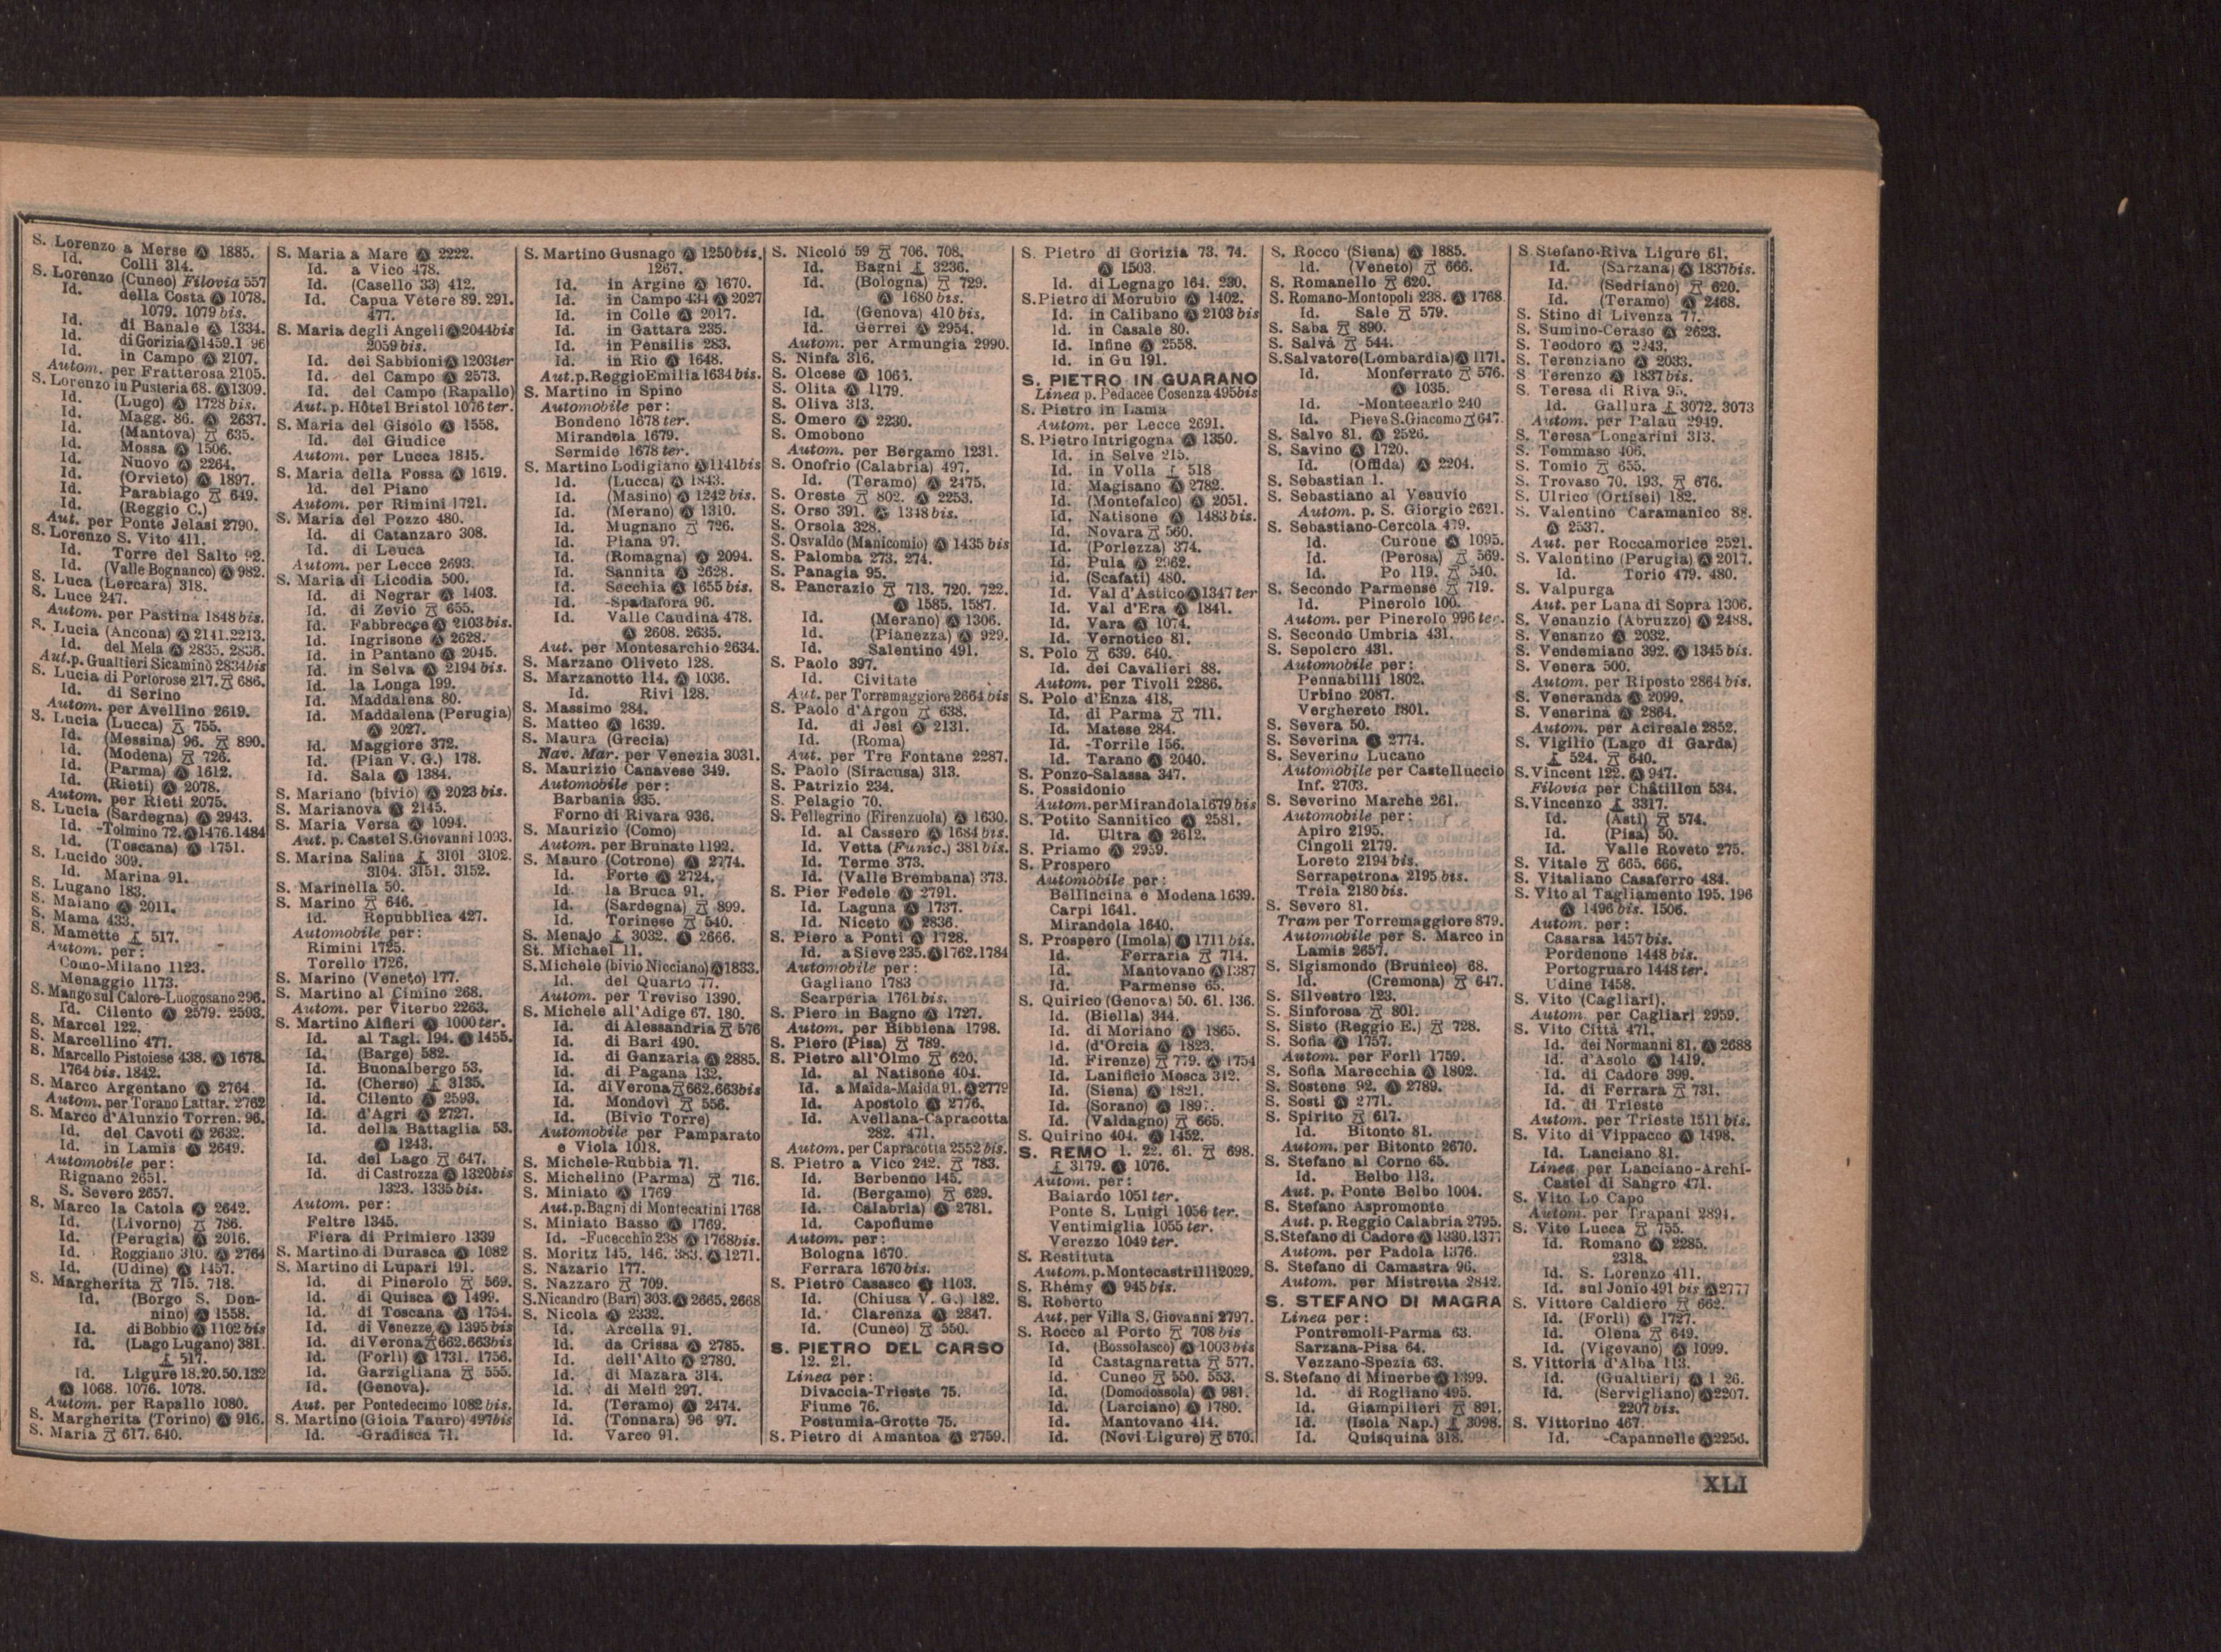 S. Lorenzo a Merse Ⓐ 1885.
Id. Colli 314.
S. Lorenzo (Cuneo) Filovia 557
Id. della Costa Ⓐ 1078.
1079. 1079 bis.
Id. di Banale Ⓐ 1334.
Id. di Gorizia Ⓐ 1459.1 96
Id. in Campo Ⓐ 2107.
Autom. per Fratterosa 2105.
S. Lorenzo in Pusteria 68. Ⓐ 1309.
Id. (Lugo) Ⓐ 1728 bis.
Id. Magg. 86. Ⓐ 2637.
Id. (Mantova) 635.
Id. Mossa Ⓐ 1506.
Id. Nuovo Ⓐ 2264.
Id. (Orvieto) Ⓐ 1897.
Id. Parabiago 649.
Id. (Reggio C.)
Aut. per Ponte Jelasi 2790.
S. Lorenzo S. Vito 411.
Id. Torre del Salto 92.
Id. (Valle Bognanco) Ⓐ 982.
S. Luca (Lercara) 318.
S. Luce 247.
Autom. per Pastina 1848 bis.
S. Lucia (Ancona) Ⓐ 2141.2213.
Id. del Mela Ⓐ 2835. 2836.
Aut. p. Gualtieri Sicaminò 2834 bis
S. Lucia di Portorose 217. 686.
Id. di Serino
Autom. per Avellino 2619.
S. Lucia (Lucca) 755.
Id. (Messina) 96. 890.
Id. (Modena) 726.
Id. (Parma) Ⓐ 1612.
Id. (Rieti) Ⓐ 2078.
Autom. per Rieti 2075.
S. Lucia (Sardegna) Ⓐ 2943.
Id. -Tolmino 72. Ⓐ 1476.1484
Id. (Toscana) Ⓐ 1751.
S. Lucido 309.
Id. Marina 91.
S. Lugano 183.
S. Maiano Ⓐ 2011.
S. Mama 433.
S. Mamette 517.
Autom. per:
Como-Milano 1123.
Menaggio 1173.
S. Mango sul Calore-Luogosano 296.
Id. Cilento Ⓐ 2579. 2593.
S. Marcel 122.
S. Marcellino 477.
S. Marcello Pistoiese 438. Ⓐ 1678.
1764 bis. 1842.
S. Marco Argentano Ⓐ 2764.
Autom. per Torano Lattar. 2762
S. Marco d'Alunzio Torren. 96.
Id. del Cavoti Ⓐ 2632.
Id. in Lamis Ⓐ 2649.
Automobile per:
Rignano 2651.
S. Severo 2657.
S. Marco la Catola Ⓐ 2642.
Id. (Livorno) 786.
Id. (Perugia) Ⓐ 2016.
Id. Roggiano 310. Ⓐ 2764
Id. (Udine) Ⓐ 1457.
S. Margherita 715. 718.
Id. (Borgo S. Don-
nino) Ⓐ 1558.
Id. di Bobbio Ⓐ 1102 bis
Id. (Lago Lugano) 381.
517.
Id. Ligure 18.20.50.132
Ⓐ 1068. 1076. 1078.
Autom. per Rapallo 1080.
S. Margherita (Torino) Ⓐ 916.
S. Maria 617. 640.
S. Maria a Mare Ⓐ 2222.
Id. a Vico 478.
Id. (Casello 33) 412.
Id. Capua Vetere 89. 291.
477.
S. Maria degli Angeli Ⓐ 2044 bis
2059 bis.
Id. dei Sabbioni Ⓐ 1203 ter
Id. del Campo Ⓐ 2573.
Id. del Campo (Rapallo)
Aut. p. Hôtel Bristol 1076 ter.
S. Maria del Gisolo Ⓐ 1558.
Id. del Giudice
Autom. per Lucca 1845.
S. Maria della Fossa Ⓐ 1619.
Id. del Piano
Autom. per Rimini 1721.
S. Maria del Pozzo 480.
Id. di Catanzaro 308.
Id. di Leuca
Autom. per Lecce 2693.
S. Maria di Licodia 500.
Id. di Negrar Ⓐ 1403.
Id. di Zevio 655.
Id. Fabbrecce Ⓐ 2103 bis.
Id. Ingrisone Ⓐ 2628.
Id. in Pantano Ⓐ 2045.
Id. in Selva Ⓐ 2194 bis.
Id. la Longa 199.
Id. Maddalena 80.
Id. Maddalena (Perugia)
Ⓐ 2027.
Id. Maggiore 372.
Id. (Pian V. G.) 178.
Id. Sala Ⓐ 1384.
S. Mariano (bivio) Ⓐ 2023 bis.
S. Marianova Ⓐ 2145.
S. Maria Versa Ⓐ 1094.
Aut. p. Castel S. Giovanni 1093.
S. Marina Salina 3101 3102.
3104. 3151. 3152.
S. Marinella 50.
S. Marino 646.
Id. Repubblica 427.
Automobile per:
Rimini 1725.
Torello 1726.
S. Marino (Veneto) 177.
S. Martino al Cimino 268.
Autom. per Viterbo 2263.
S. Martino Alfieri Ⓐ 1000 ter.
Id. al Tagl. 194. Ⓐ 1455.
Id. (Barge) 582.
Id. Buonalbergo 53.
Id. (Cherso) 3135.
Id. Cilento Ⓐ 2593.
Id. d'Agri Ⓐ 2727.
Id. della Battaglia 53.
Ⓐ 1243.
Id. del Lago 647.
Id. di Castrozza Ⓐ 1320 bis
1323. 1335 bis.
Autom. per:
Feltre 1345.
Fiera di Primiero 1339
S. Martino di Durasca Ⓐ 1082
S. Martino di Lupari 191.
Id. di Pinerolo 569.
Id. di Quisca Ⓐ 1499.
Id. di Toscana Ⓐ 1754.
Id. di Venezze Ⓐ 1395 bis
Id. di Verona 662.663 bis
Id. (Forlì) Ⓐ 1731. 1756.
Id. Garzigliana 555.
Id. (Genova).
Aut. per Pontedecimo 1082 bis.
S. Martino (Gioia Tauro) 497 bis
Id. -Gradisca 71.
S. Martino Gusnago Ⓐ 1250 bis.
1267.
Id. in Argine Ⓐ 1670.
Id. in Campo 434 Ⓐ 2027
Id. in Colle Ⓐ 2017.
Id. in Gattara 235.
Id. in Pensilis 283.
Id. in Rio Ⓐ 1648.
Aut. p. Reggio Emilia 1634 bis.
S. Martino in Spino
Automobile per:
Bondeno 1678 ter.
Mirandola 1679.
Sermide 1678 ter.
S. Martino Lodigiano Ⓐ 1141 bis
Id. (Lucca) Ⓐ 1843.
Id. (Masino) Ⓐ 1242 bis.
Id. (Merano) Ⓐ 1310.
Id. Mugnano 726.
Id. Piana 97.
Id. (Romagna) Ⓐ 2094.
Id. Sannita Ⓐ 2628.
Id. Secchia Ⓐ 1655 bis.
Id. -Spadafora 96.
Id. Valle Caudina 478.
Ⓐ 2608. 2635.
Aut. per Montesarchio 2634.
S. Marzano Oliveto 128.
S. Marzanotto 114. Ⓐ 1036.
Id. Rivi 128.
S. Massimo 284.
S. Matteo Ⓐ 1639.
S. Maura (Grecia)
Nav. Mar. per Venezia 3031.
S. Maurizio Canavese 349.
Automobile per:
Barbania 935.
Forno di Rivara 936.
S. Maurizio (Como)
Autom. per Brunate 1192.
S. Mauro (Cotrone) Ⓐ 2774.
Id. Forte Ⓐ 2724.
Id. la Bruca 91.
Id. (Sardegna) 899.
Id. Torinese 540.
S. Menajo 3032. Ⓐ 2666.
St. Michael 11.
S. Michele (bivio Nicciano) Ⓐ 1833.
Id. del Quarto 77.
Autom. per Treviso 1390.
S. Michele all'Adige 67. 180.
Id. di Alessandria 576
Id. di Bari 490.
Id. di Ganzaria Ⓐ 2885.
Id. di Pagana 132.
Id. di Verona 662.663 bis
Id. Mondovì 556.
Id. (Bivio Torre)
Automobile per Pamparato
e Viola 1018.
S. Michele-Rubbia 71.
S. Michelino (Parma) 716.
S. Miniato Ⓐ 1769
Aut. p. Bagni di Montecatini 1768
S. Miniato Basso Ⓐ 1769.
Id. -Fucecchio 238 Ⓐ 1768 bis.
S. Moritz 145. 146. 383. Ⓐ 1271.
S. Nazario 177.
S. Nazzaro 709.
S. Nicandro (Bari) 303. Ⓐ 2665. 2668
S. Nicola Ⓐ 2332.
Id. Arcella 91.
Id. da Crissa Ⓐ 2785.
Id. dell'Alto Ⓐ 2780.
Id. di Mazara 314.
Id. di Melfi 297.
Id. (Teramo) Ⓐ 2474.
Id. (Tonnara) 96 97.
Id. Varco 91.
S. Nicolò 59 706. 708.
Id. Bagni 3236.
Id. (Bologna) 729.
Ⓐ 1680 bis.
Id. (Genova) 410 bis.
Id. Gerrei Ⓐ 2954.
Autom. per Armungia 2990.
S. Ninfa 316.
S. Olcese Ⓐ
S. Olita Ⓐ 1179.
S. Oliva 313.
S. Omero Ⓐ 2230.
S. Omobono
Autom. per Bergamo 1231.
S. Onofrio (Calabria) 497.
Id. (Teramo) Ⓐ 2475.
S. Oreste 802. Ⓐ 2253.
S. Orso 391. Ⓐ 1348 bis.
S. Orsola 328.
S. Osvaldo (Manicomio) Ⓐ 1435 bis
S. Palomba 273. 274.
S. Panagia 95.
S. Pancrazio 713. 720. 722.
Ⓐ 1585. 1587.
Id. (Merano) Ⓐ 1306.
Id. (Pianezza) Ⓐ 929.
Id. Salentino 491.
S. Paolo 397.
Id. Civitate
Aut. per Torremaggiore 2664 bis
S. Paolo d'Argon 638.
Id. di Jesi Ⓐ 2131.
Id. (Roma)
Aut. per Tre Fontane 2287.
S. Paolo (Siracusa) 313.
S. Patrizio 234.
S. Pelagio 70.
S. Pellegrino (Firenzuola) Ⓐ 1630.
Id. al Cassero Ⓐ 1684 bis.
Id. Vetta (Funic.) 381 bis.
Id. Terme 373.
Id. (Valle Brembana) 373.
S. Pier Fedele Ⓐ 2791.
Id. Laguna Ⓐ 1737.
Id. Niceto Ⓐ 2836.
S. Piero a Ponti Ⓐ 1728.
Id. a Sieve 235. Ⓐ 1762.1784
Automobile per:
Gagliano 1783
Scarperia 1761 bis.
S. Piero in Bagno Ⓐ 1727.
Autom. per Bibbiena 1798.
S. Piero (Pisa) 789.
S. Pietro all'Olmo 620.
Id. al Natisone 404.
Id. a Maida-Maida 91. Ⓐ 2779
Id. Apostolo Ⓐ 2776.
Id. Avellana-Capracotta
282. 471.
Autom. per Capracotta 2552 bis.
S. Pietro a Vico 242. 783.
Id. Berbenno 145.
Id. (Bergamo) 629.
Id. Calabria) Ⓐ 2781.
Id. Capofiume
Autom. per:
Bologna 1670.
Ferrara 1670 bis.
S. Pietro Casasco Ⓐ 1103.
Id. (Chiusa V. G.) 182.
Id. Clarenza Ⓐ 2847.
Id. (Cuneo) 550.
S. PIETRO DEL CARSO
12. 21.
Linea per:
Divaccia-Trieste 75.
Fiume 76.
Postumia-Grotte 75.
S. Pietro di Amantea Ⓐ 2759.
S. Pietro di Gorizia 73. 74.
Ⓐ 1503.
Id. di Legnago 164. 230.
S. Pietro di Morubio Ⓐ 1402.
Id. in Calibano Ⓐ 2103 bis
Id. in Casale 80.
Id. Infine Ⓐ 2558.
Id. in Gu 191.
S. PIETRO IN GUARANO
Linea p. Pedacee Cosenza 495 bis
S. Pietro in Lama
Autom. per Lecce 2691.
S. Pietro Intrigogna Ⓐ 1350.
Id. in Selve 215.
Id. in Volla 518
Id. Magisano Ⓐ 2782.
Id. (Montefalco) Ⓐ 2051.
Id. Natisone Ⓐ 1483 bis.
Id. Novara 560.
Id. (Porlezza) 374.
Id. Pula Ⓐ 2962.
id. (Scafati) 480.
Id. Val d'Astico Ⓐ 1347 ter
Id. Val d'Era Ⓐ 1841.
Id. Vara Ⓐ 1074.
Id. Vernotico 81.
S. Polo 639. 640.
Id. dei Cavalieri 88.
Autom. per Tivoli 2286.
S. Polo d'Enza 418.
Id. di Parma 711.
Id. Matese 284.
Id. -Torrile 156.
Id. Tarano Ⓐ 2040.
S. Ponzo-Salassa 347.
S. Possidonio
Autom. per Mirandola 1679 bis
S. Potito Sannitico Ⓐ 2581.
Id. Ultra Ⓐ 2612.
S. Priamo Ⓐ 2959.
S. Prospero
Automobile per:
Bellincina e Modena 1639.
Carpi 1641.
Mirandola 1640.
S. Prospero (Imola) Ⓐ 1711 bis.
Id. Ferraria 714.
Id. Mantovano Ⓐ 1387
Id. Parmense 65.
S. Quirico (Genova) 50. 61. 136.
Id. (Biella) 344.
Id. di Moriano Ⓐ 1865.
Id. (d'Orcia Ⓐ 1823.
Id. Firenze) 779. Ⓐ 1754
Id. Lanificio Mosca 342.
Id. (Siena) Ⓐ 1821.
Id. (Sorano) Ⓐ
Id. (Valdagno) 665.
S. Quirino 404. Ⓐ 1452.
S. REMO 1. 22. 61. 698.
3179. Ⓐ 1076.
Autom. per:
Baiardo 1051 ter.
Ponte S. Luigi 1056 ter.
Ventimiglia 1055 ter.
Verezzo 1049 ter.
S. Restituta
Autom. p. Montecastrilli 2029.
S. Rhémy Ⓐ 945 bis.
S. Roberto
Aut. per Villa S. Giovanni 2797.
S. Rocco al Porto 708 bis
Id. (Bossolasco) Ⓐ 1003 bis
Id Castagnaretta 577.
Id. Cuneo 550. 553.
Id. (Domodossola) Ⓐ 981.
Id. (Larciano) Ⓐ 1780.
Id. Mantovano 414.
Id. (Novi Ligure) 570.
S. Rocco (Siena) Ⓐ 1885.
Id. (Veneto) 666.
S. Romanello 620.
S. Romano-Montopoli 238. Ⓐ 1768
Id. Sale 579.
S. Saba 890.
S. Salvà 544.
S. Salvatore (Lombardia) Ⓐ 1171.
Id. Monferrato 576.
Ⓐ 1035.
Id. -Montecarlo 240
Id. Pieve S. Giacomo 647.
S. Salvo 81. Ⓐ 2526.
S. Savino Ⓐ 1720.
Id. (Offida) Ⓐ 2204.
S. Sebastian 1.
S. Sebastiano al Vesuvio
Autom. p. S. Giorgio 2621.
S. Sebastiano-Cercola 479.
Id. Curone Ⓐ 1095.
Id. (Perosa) 569.
Id. Po 119. 540.
S. Secondo Parmense 719.
Id. Pinerolo 100.
Autom. per Pinerolo 996 ter.
S. Secondo Umbria 431.
S. Sepolcro 431.
Automobile per:
Pennabilli 1802.
Urbino 2087.
Verghereto 1801.
S. Severa 50.
S. Severina Ⓐ 2774.
S. Severino Lucano
Automobile per Castelluccio
Inf. 2703.
S. Severino Marche 261.
Automobile per:
Apiro 2195.
Cingoli 2179.
Loreto 2194 bis.
Serrapetrona 2195 bis.
Treia 2180 bis.
S. Severo 81.
Tram per Torremaggiore 879.
Automobile per S. Marco in
Lamis 2657.
S. Sigismondo (Brunico) 68.
Id. (Cremona) 647.
S. Silvestro 123.
S. Sinforosa 801.
S. Sisto (Reggio E.) 728.
S. Sofia Ⓐ 1757.
Autom. per Forlì 1759.
S. Sofia Marecchia Ⓐ 1802.
S. Sostene 92. Ⓐ 2789.
S. Sosti Ⓐ 2771.
S. Spirito 617.
Id. Bitonto 81.
Autom. per Bitonto 2670.
S. Stefano al Corno 65.
Id. Belbo 113.
Aut. p. Ponte Belbo 1004.
S. Stefano Aspromonte
Aut. p. Reggio Calabria 2795.
S. Stefano di Cadore Ⓐ 1330.1377
Autom. per Padola 1376.
S. Stefano di Camastra 96.
Autom. per Mistretta 2842.
S. STEFANO DI MAGRA
Linea per:
Pontremoli-Parma 63.
Sarzana-Pisa 64.
Vezzano-Spezia 63.
S. Stefano di Minerbe Ⓐ 1399.
Id. di Rogliano 495.
Id. Giampilieri 891.
Id. (Isola Nap.) 3098.
Id. Quisquina 318.
S Stefano-Riva Ligure 61.
Id. (Sarzana) Ⓐ 1837 bis.
Id. (Sedriano) 620.
Id. (Teramo) Ⓐ 2468.
S. Stino di Livenza 77.
S. Sumino-Ceraso Ⓐ 2623.
S. Teodoro Ⓐ 2943.
S. Terenziano Ⓐ 2033.
S. Terenzo Ⓐ 1837 bis.
S. Teresa di Riva 95.
Id. Gallura 3072. 3073
Autom. per Palau 2949.
S. Teresa Longarini 313.
S. Tommaso 406.
S. Tomio 655.
S. Trovaso 70. 193. 676.
S. Ulrico (Ortisei) 182.
S. Valentino Caramanico 88.
Ⓐ 2537.
Aut. per Roccamorice 2521.
S. Valentino (Perugia) Ⓐ 2017.
Id. Torio 479. 480.
S. Valpurga
Aut. per Lana di Sopra 1306.
S. Venanzio (Abruzzo) Ⓐ 2488.
S. Venanzo Ⓐ 2032.
S. Vendemiano 392. Ⓐ 1345 bis.
S. Venera 500.
Autom. per Riposto 2864 bis.
S. Veneranda Ⓐ 2099.
S. Venerina Ⓐ 2864.
Autom. per Acireale 2852.
S. Vigilio (Lago di Garda)
524. 640.
S. Vincent 122. Ⓐ 947.
Filovia per Châtillon 534.
S. Vincenzo 3317.
Id. (Asti) 574.
Id. (Pisa) 50.
Id. Valle Roveto 275.
S. Vitale 665. 666.
S. Vitaliano Casaferro 484.
S. Vito al Tagliamento 195. 196
Ⓐ 1496 bis. 1506.
Autom. per:
Casarsa 1457 bis.
Pordenone 1448 bis.
Portogruaro 1448 ter.
Udine 1458.
S. Vito (Cagliari).
Autom. per Cagliari 2959.
S. Vito Città 471.
Id. dei Normanni 81. Ⓐ 2688
Id. d'Asolo Ⓐ 1419.
Id. di Cadore 399.
Id. di Ferrara 731.
Id. di Trieste
Autom. per Trieste 1511 bis.
S. Vito di Vippacco Ⓐ 1498.
Id. Lanciano 81.
Linea per Lanciano-Archi-
Castel di Sangro 471.
S. Vito Lo Capo
Autom. per Trapani 2894.
S. Vito Lucca 755.
Id. Romano Ⓐ 2285.
2318.
Id. S. Lorenzo 411.
Id. sul Jonio 491 bis Ⓐ 2777
S. Vittore Caldiero 662.
Id. (Forlì) Ⓐ 1727.
Id. Olona 649.
Id. (Vigevano) Ⓐ 1099.
S. Vittoria d'Alba 113.
Id. (Gualtieri) Ⓐ 1 26.
Id. (Servigliano) Ⓐ 2207.
2207 bis.
S. Vittorino 467.
Id. -Capannelle Ⓐ 2256.
XLI